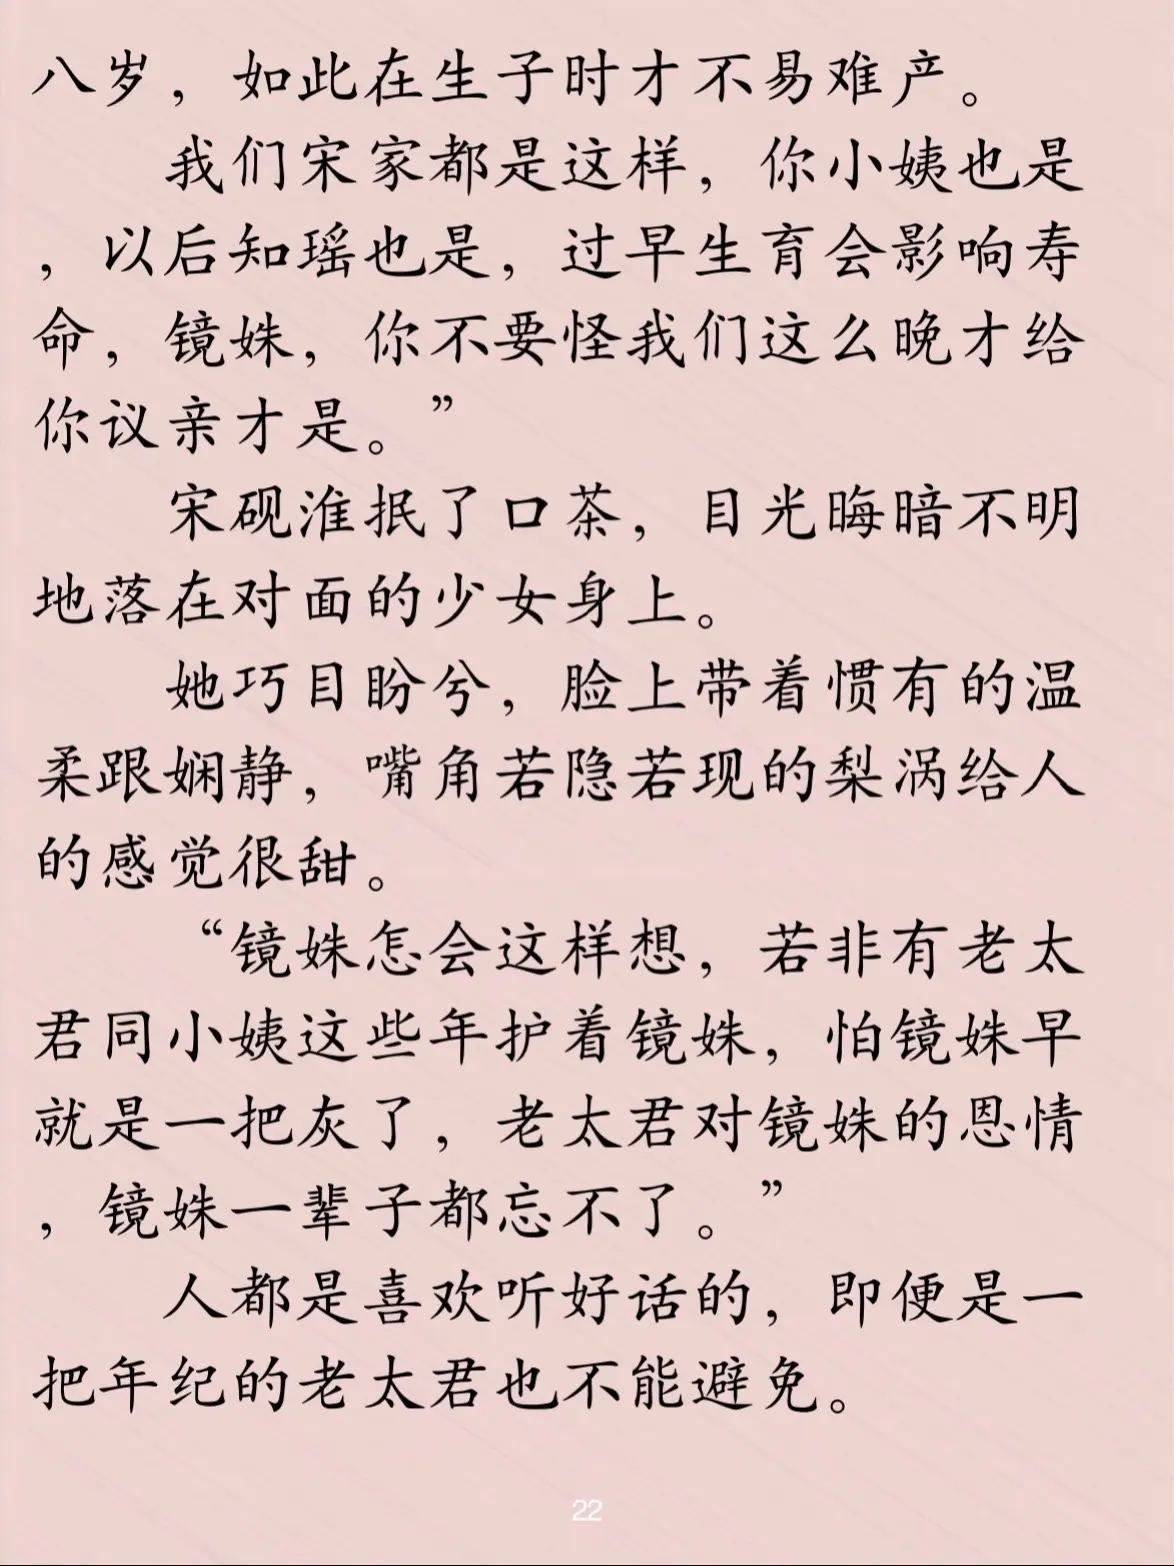 八岁，如此在生子时才不易难产。
我们宋家都是这样，你小姨也是
，以后知瑶也是，过早生育会影响寿
命，镜姝，你不要怪我们这么晚才给
你议亲才是。”
宋砚淮抿了口茶，目光晦暗不明
地落在对面的少女身上。
她巧目盼兮，脸上带着惯有的温
柔跟娴静，嘴角若隐若现的梨涡给人
的感觉很甜。
“镜姝怎会这样想，若非有老太
君同小姨这些年护着镜姝，怕镜姝早
就是一把灰了，老太君对镜姝的恩情
，镜姝一辈子都忘不了。”
人都是喜欢听好话的，即便是一
把年纪的老太君也不能避免。
22